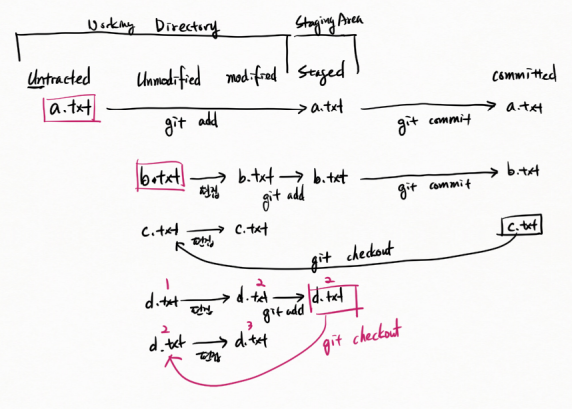 Working Directory Staging Area
Untracted Unmodified modified Staged committed
a.txt git add a.txt git commit a.txt
b.txt 편집 b.txt git add b.txt git commit b.txt
c.txt 편집 c.txt c.txt
git checkout
1 2 2
d.txt 편집 d.txt git add d.txt
2 3
d.txt 편집 d.txt git checkout